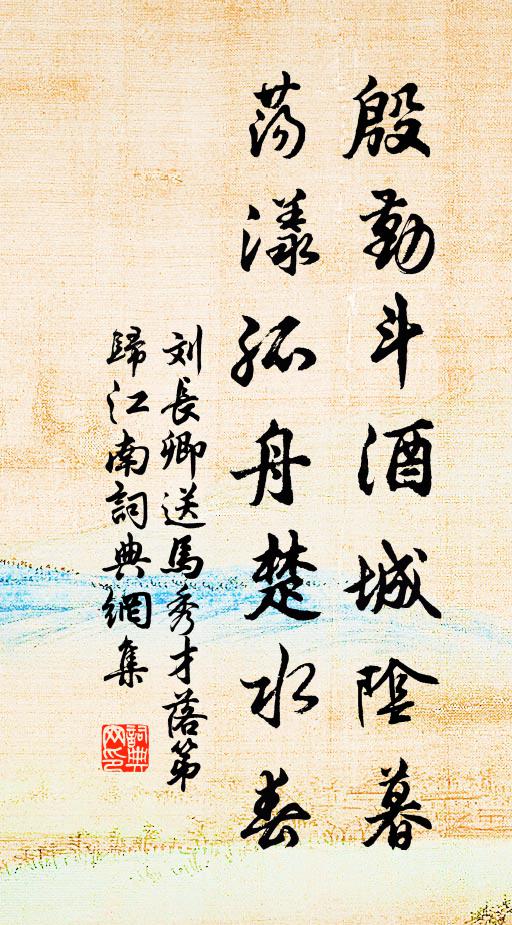 殷勤斗酒城陰暮
荡漾孤舟楚水春
刘長卿送馬秀才落第
歸江南詞典網集
詞典网印